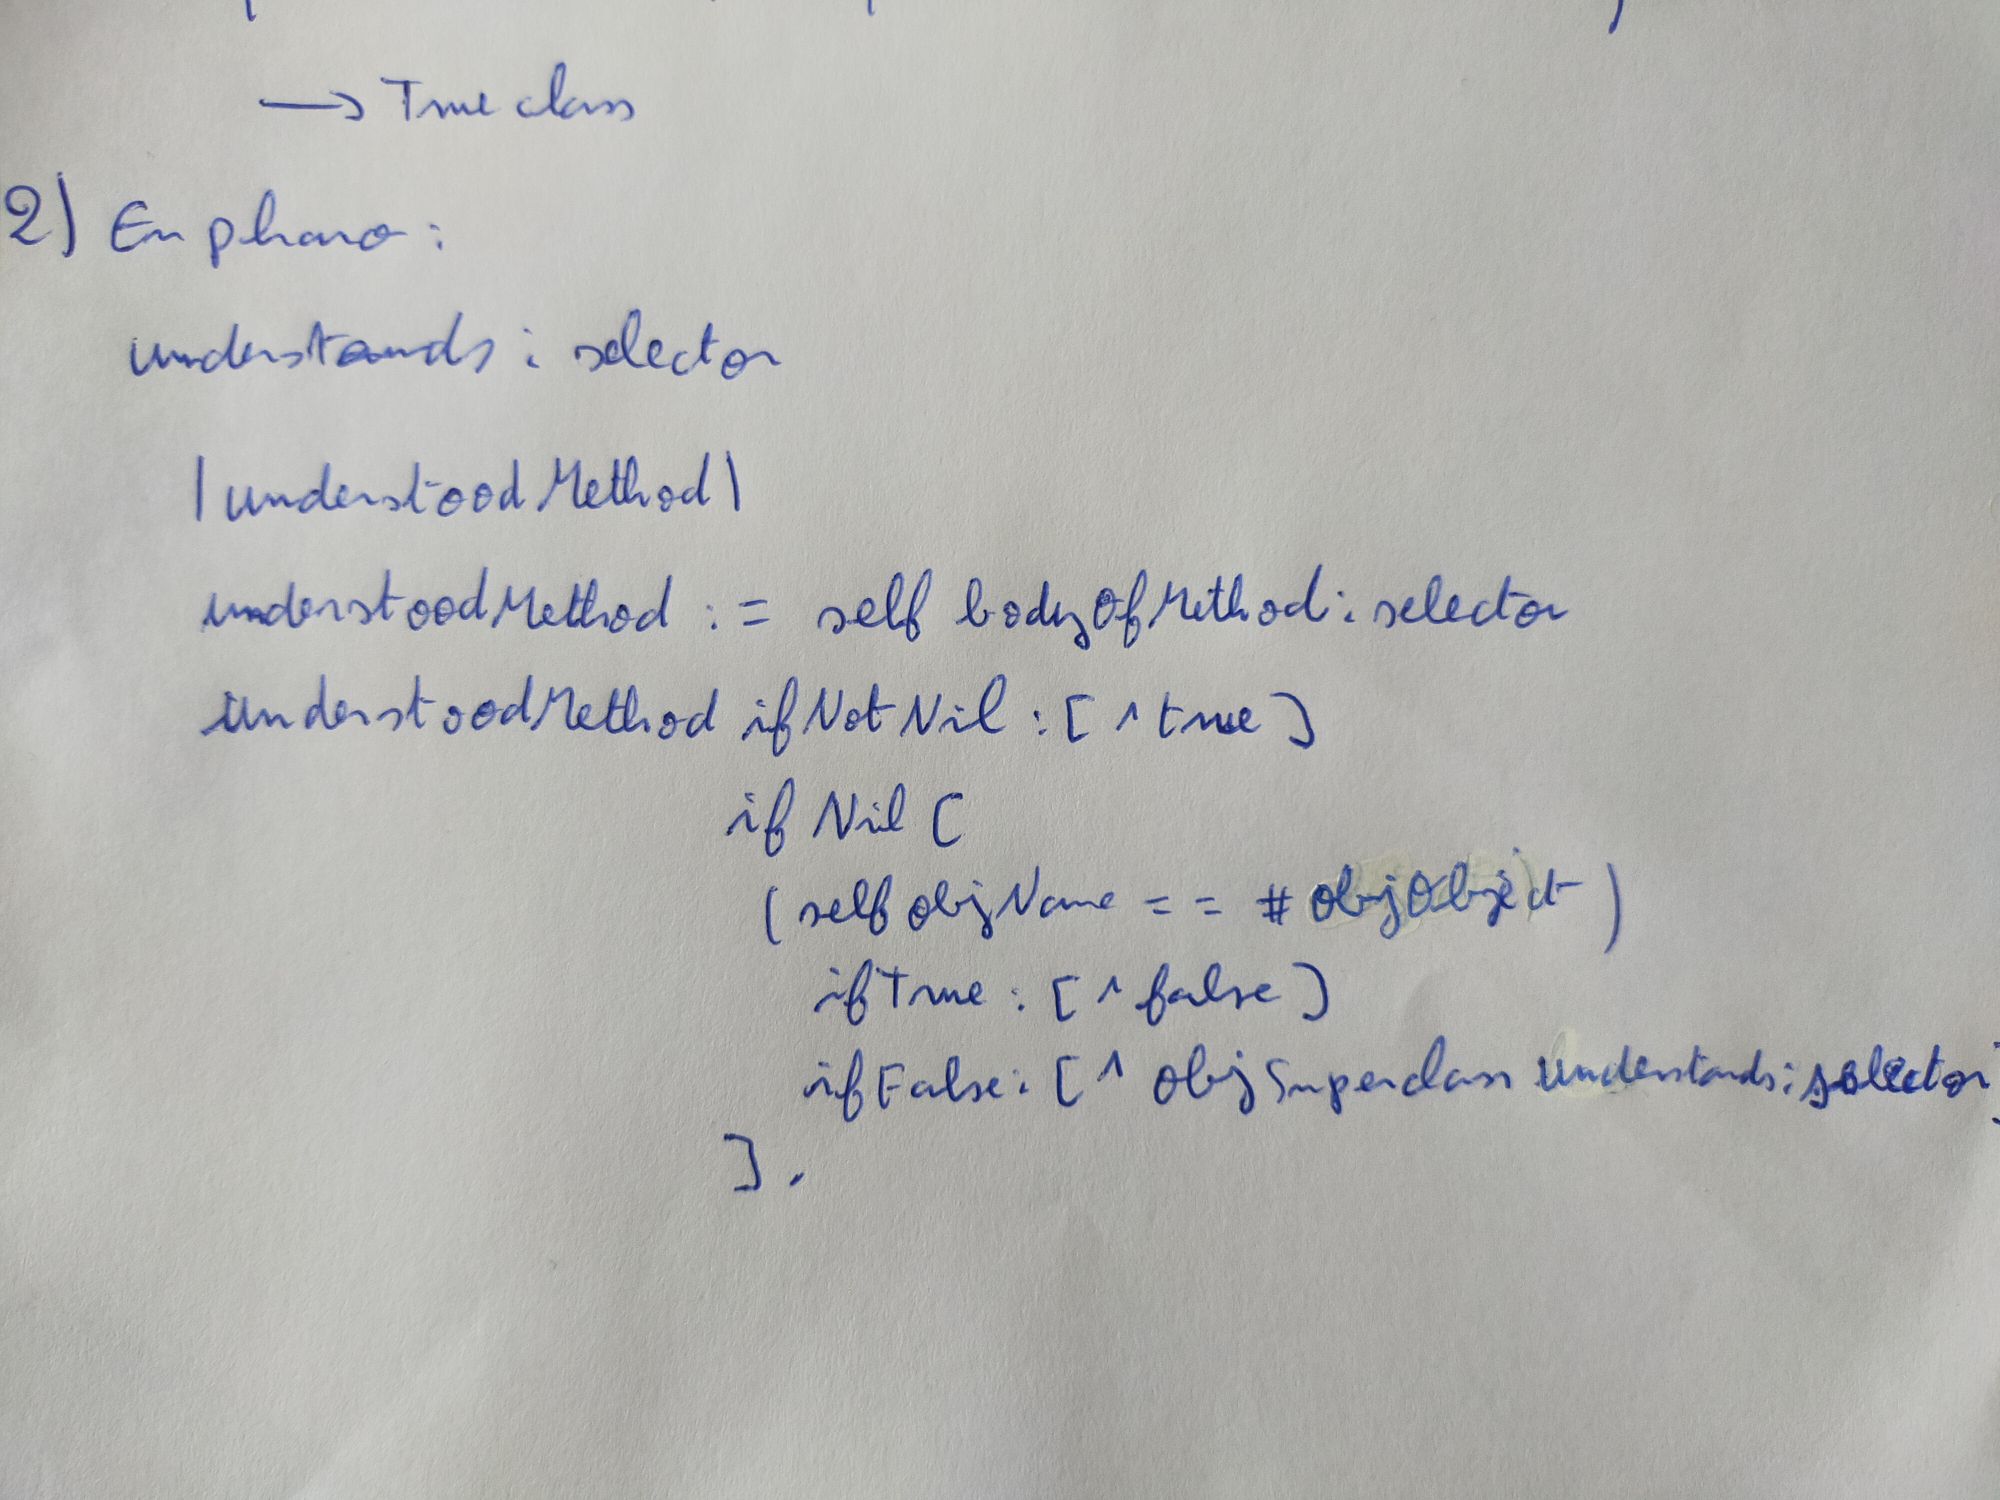 → True class
2) En pharo :
understands : selector
| understoodMethod |
understoodMethod := self bodyOfMethod : selector
understoodMethod ifNotNil : [ ^ true ]
ifNil [
( self objName == # ObjObject )
ifTrue : [ ^ false ]
ifFalse : [ ^ objSuperclass understands : selector ]
] .